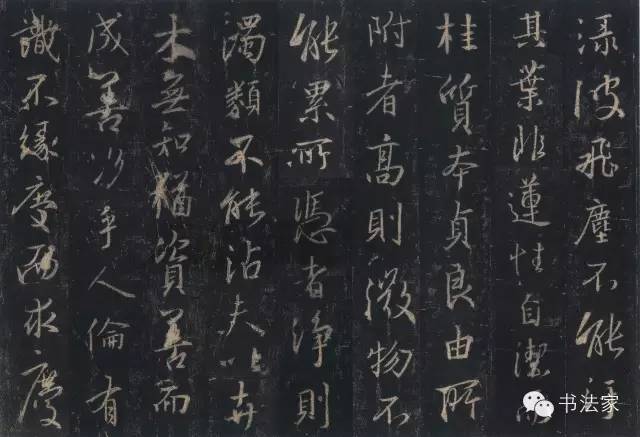 渌波飛塵不能污
其葉非蓮性自潔而
桂質本貞良由所
附者高則微物不
能累所憑者浄則
濁類不能沾夫以卉
木無知猶資善而
成善況乎人倫有
識不緣慶而求慶
书法家